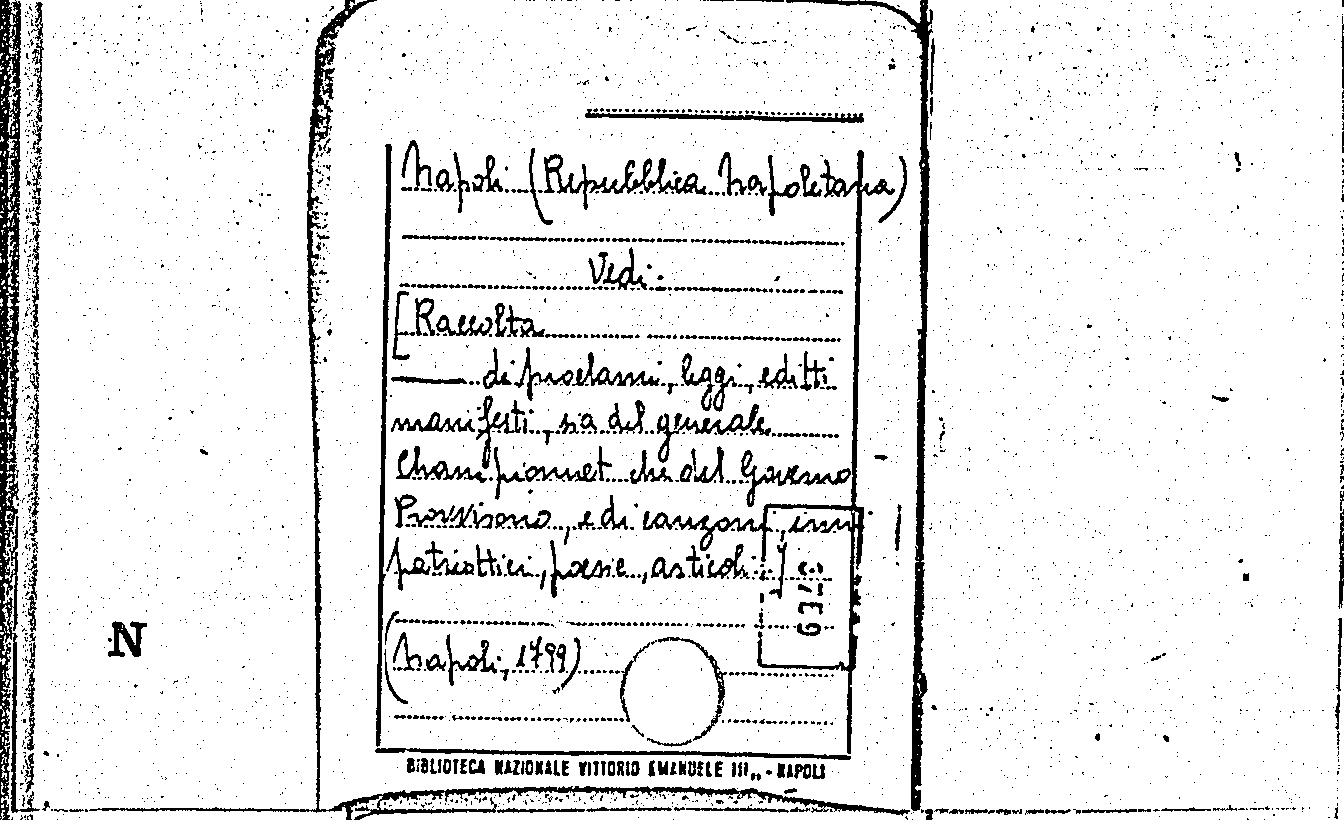 Napoli (Repubblica Napoletana)
Vedi:
[Raccolta
di proclami, leggi, editti
manifesti, sia del generale
Championnet che del Governo
Provvisorio, e di canzoni, inni
patriottici, poesie, articoli..]
(Napoli, 1799)
N
BIBLIOTECA NAZIONALE VITTORIO EMANUELE III,, - NAPOLI